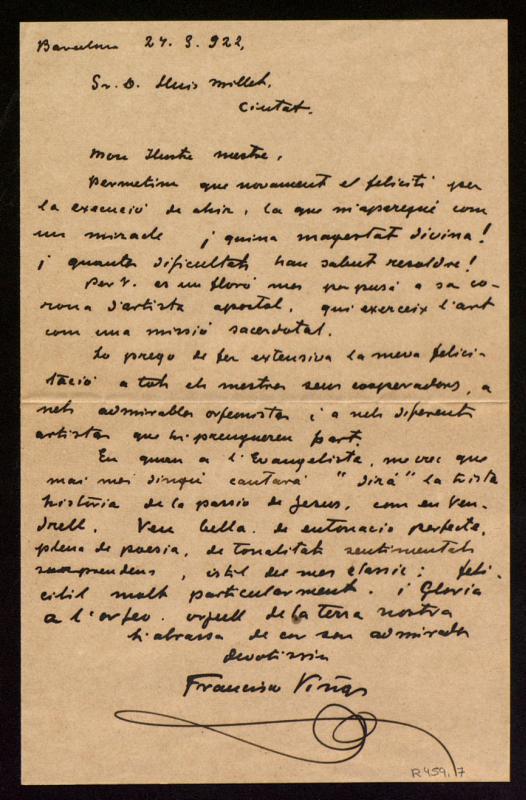 Barcelona 24. 3. 922,
Sr. D. Lluis Millet,
Ciutat.
Mon Ilustre mestre,
Permetim que novament el feliciti per
la execució de ahir, la que m'aparegué com
un miracle ¡ quina magestat divina!
¡ quantas dificultats han sabut resoldre!
Per V. es un floró mes per posá a sa co-
rona d'artista apostol, qui exerceix l'art
com una missió sacerdotal.
Lo prego de fer extensiva la meva felici-
tació a tots els mestres seus cooperadors, a
nels admirables orfeonistas i a nels diferents
artistas que hi prengueren part.
En quan a l'Evangelista, me crec que
mai mes dingú cantará "dirá" la trista
história de la passio de Jesus, com en Ven-
drell. Veu bella, de entonacio perfecte,
plena de poesia, de tonalitats sentimentals
, istil del mes classic; feli-
citil molt particularment. ¡ Gloria
a l'orfeo. orgull de la terra nostra
l'abrassa de cor son admirador
devotissim
Francisco Viñas
R 459.7